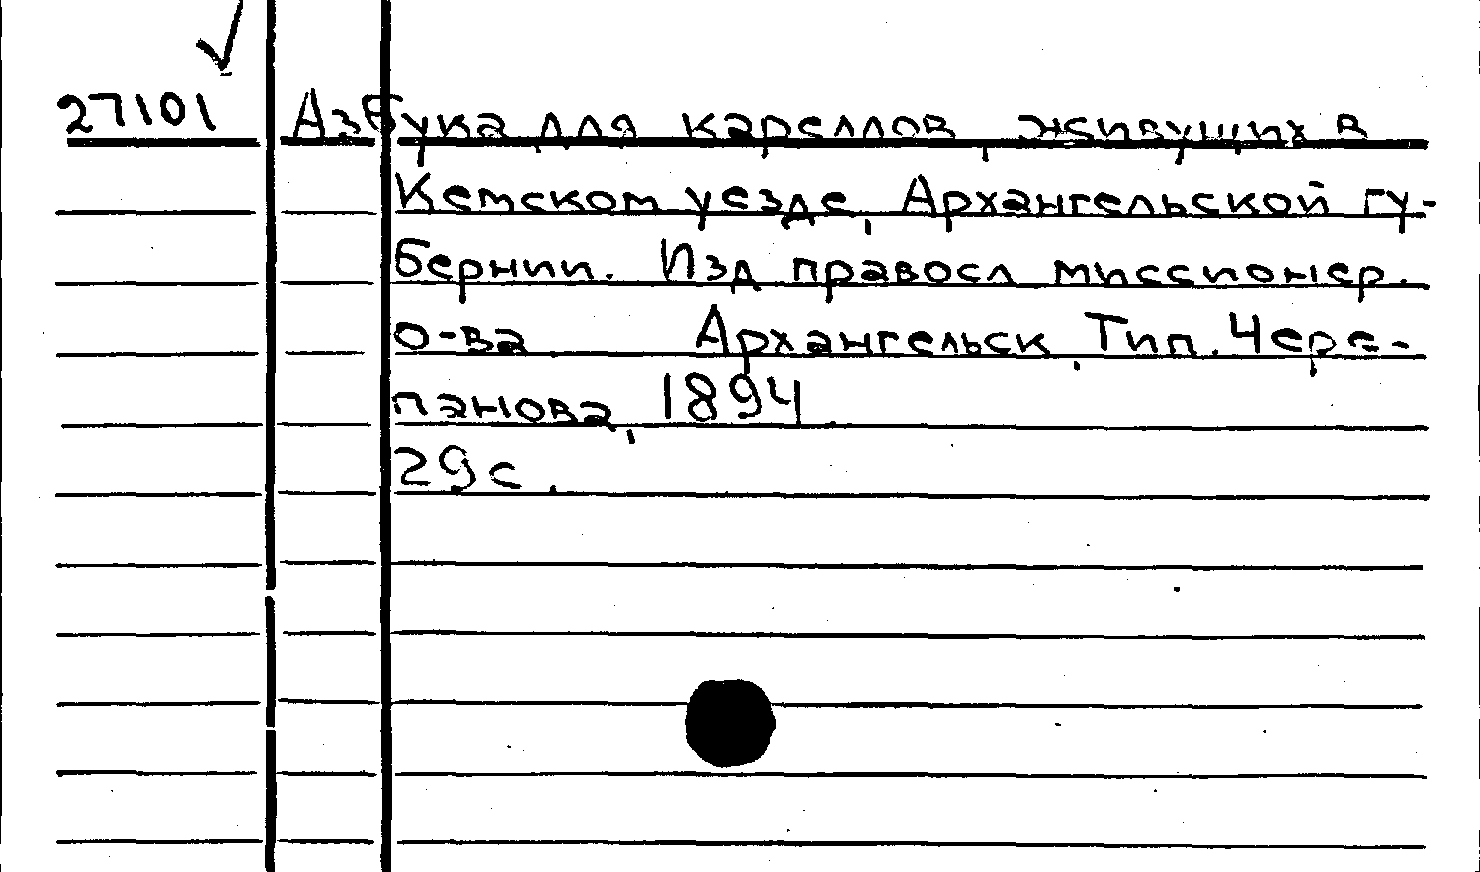 27101 Азбука для карелов, живущих в
Кемском уезде, Архангельской гу-
бернии. Изд правосл миссионер.
о-ва Архангельск, Тип. Чере-
панова, 1894
29 с.